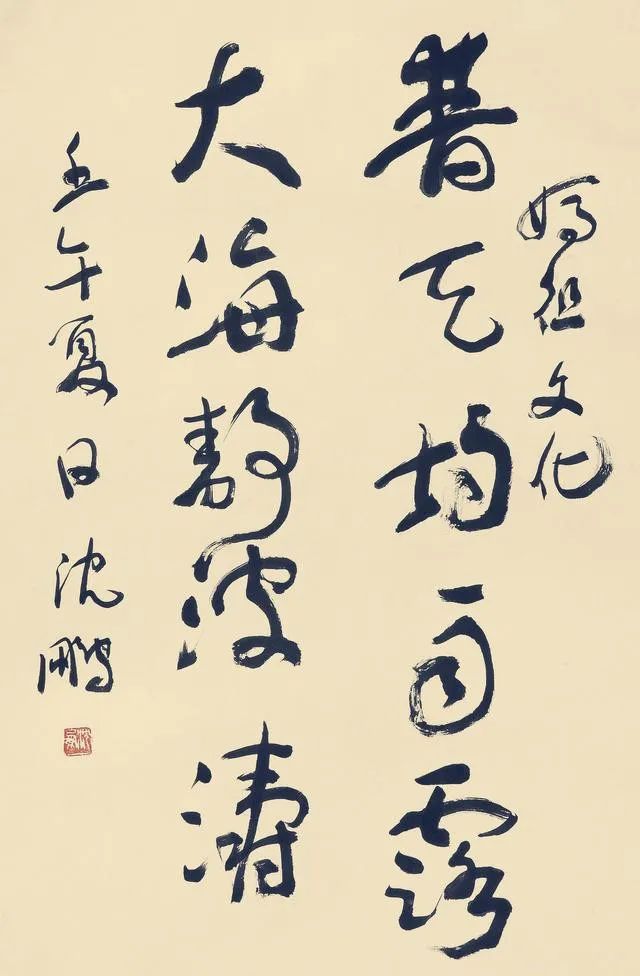 媽祖文化
普天均雨露
大海静波濤
壬午夏日沈鵬